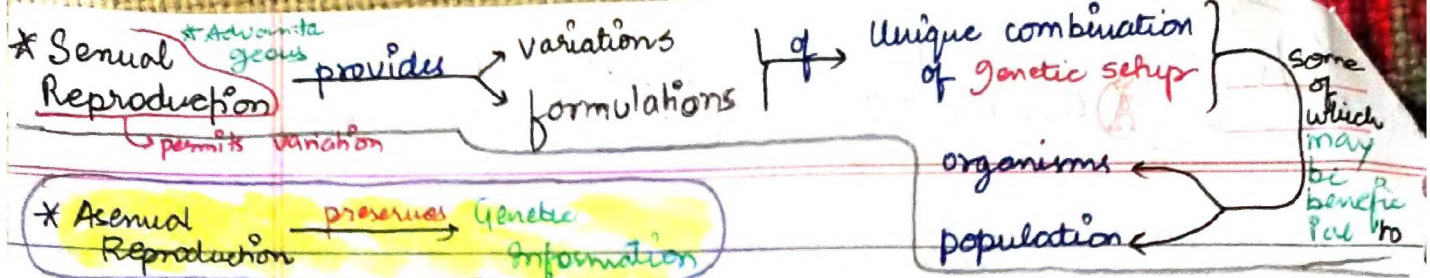 * Sexual
Reproduction
* Advanta
geous
permits variation
provides
variations
formulations
of
Unique combination
of genetic setup
some
of
which
may
be
benefic
ial to
organisms
population
* Asexual
Reproduction
preserves
Genetic
Information